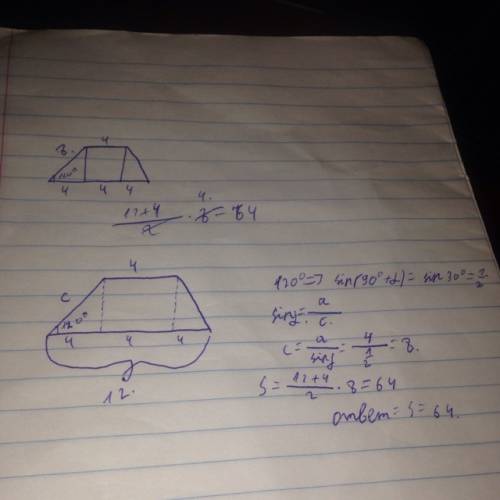 4
8.
120°
4 4 4
(12+4)/2 · 8 = 64
4.
4
c
120°
4 4 4
12.
120° => sin(90°+α)= sin 30°=1/2
sin y = a/c.
c = a/sin y = 4/(1/2) = 8.
S = (12+4)/2 · 8 = 64
ответ = S = 64.